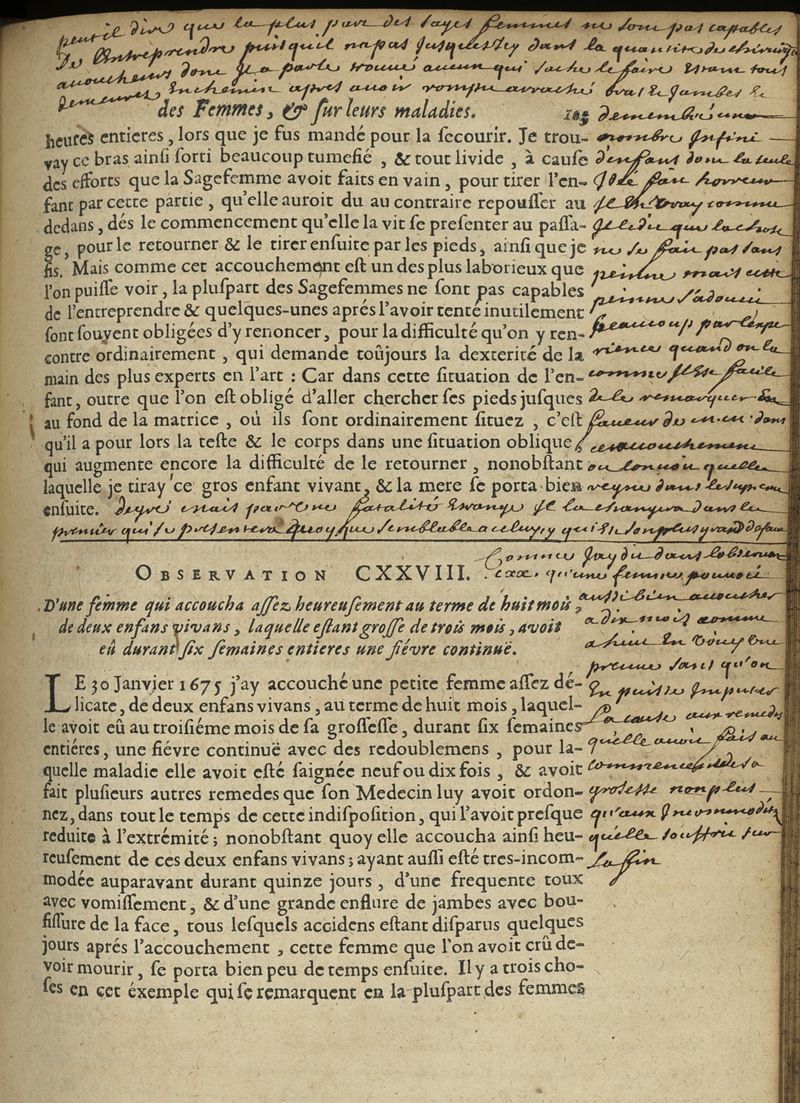 peut il dire que la plus part des sages femmes ne sont pas capables
de Lentreprendre puis quil na pas jusques icy dans la quantité de chirurgi
acoucheurs dont il a parlé trouvé aucun qui sache le faire estant tous
demeurez en chemin apres avoir rompu arraché bras & jambes &
des Femmes, & ſur leurs maladies.
heures entieres, lors que je fus mandé pour la ſecourir. Je trou-
vay ce bras ainſi ſorti beaucoup tumefié, & tout livide, à cauſe
des efforts que la Sagefemme avoit faits en vain, pour tirer l'en-
fant par cette partie, qu'elle auroit du au contraire repouſſer au
dedans, dés le commencement qu'elle la vit ſe preſenter au paſſa-
ge, pour le retourner & le tirer enſuite par les pieds, ainſi que je
fis. Mais comme cet accouchement eſt un des plus laborieux que
l'on puiſſe voir, la pluſpart des Sagefemmes ne ſont pas capables
de l'entreprendre & quelques-unes aprés l'avoir tenté inutilement
ſont ſouvent obligées d'y renoncer, pour la difficulté qu'on y ren-
contre ordinairement, qui demande toûjours la dexterité de la
main des plus experts en l'art : Car dans cette ſituation de l'en-
fant, outre que l'on eſt obligé d'aller chercher ſes pieds juſques
au fond de la matrice, où ils ſont ordinairement ſituez, c'eſt
qu'il a pour lors la teſte & le corps dans une ſituation oblique,
qui augmente encore la difficulté de le retourner, nonobſtant
laquelle je tiray ce gros enfant vivant, & la mere ſe porta bien
enſuite.
demembré une
nombre infini
d'enfans dont la seule
idée fait horreur
je
je le dis que la chose
ne se fait pas sans
peine mais cette
peine s'adouci
beaucoup par lexpe
rience quand on la
comme elle facile
de le remarquer en
faveur de
cet accouchement
ou lon voit quelle
degré mais par une fatalité estrange il la changea dans le
premier qui se presentera quoy que semblable a celuy cy qui est son plus grand defaut
OBSERVATION CXXVIII.
D'une femme qui accoucha aſſez heureuſement au terme de huit mois,
de deux enfans vivans, laquelle eſtant groſſe de trois mois, avoit
eû durant ſix ſemaines entieres une fiévre continuë.
LE 30 Janvier 1675 j'ay accouché une petite femme aſſez dé-
licate, de deux enfans vivans, au terme de huit mois, laquel-
le avoit eû au troiſiéme mois de ſa groſſeſſe, durant ſix ſemaines
entiéres, une fiévre continuë avec des redoublemens, pour la-
quelle maladie elle avoit eſté ſaignée neuf ou dix fois, & avoit
fait pluſieurs autres remedes que ſon Medecin luy avoit ordon-
nez, dans tout le temps de cette indiſpoſition, qui l'avoit preſque
reduite à l'extrémité ; nonobſtant quoy elle accoucha ainſi heu-
reuſement de ces deux enfans vivans ; ayant auſſi eſté tres-incom-
modée auparavant durant quinze jours, d'une frequente toux
avec vomiſſement, & d'une grande enflure de jambes avec bou-
fiſſure de la face, tous leſquels accidens eſtant diſparus quelques
jours aprés l'accouchement, cette femme que l'on avoit crû de-
voir mourir, ſe porta bien peu de temps enſuite. Il y a trois cho-
ſes en cet éxemple qui ſe remarquent en la pluſpart des femmes
Comme jay dit dans lobservation
qu'une femme pouvoit
aussi bien accoucher
a dix mois comme
a huit en voicy une
preuve sans qu'on
en puisse imputer
la cause aux remedes
quelle avoit fait au
commencement de sa
grosesse non plus
qu'aux incommoditez
quelle souffrit sur
la fin